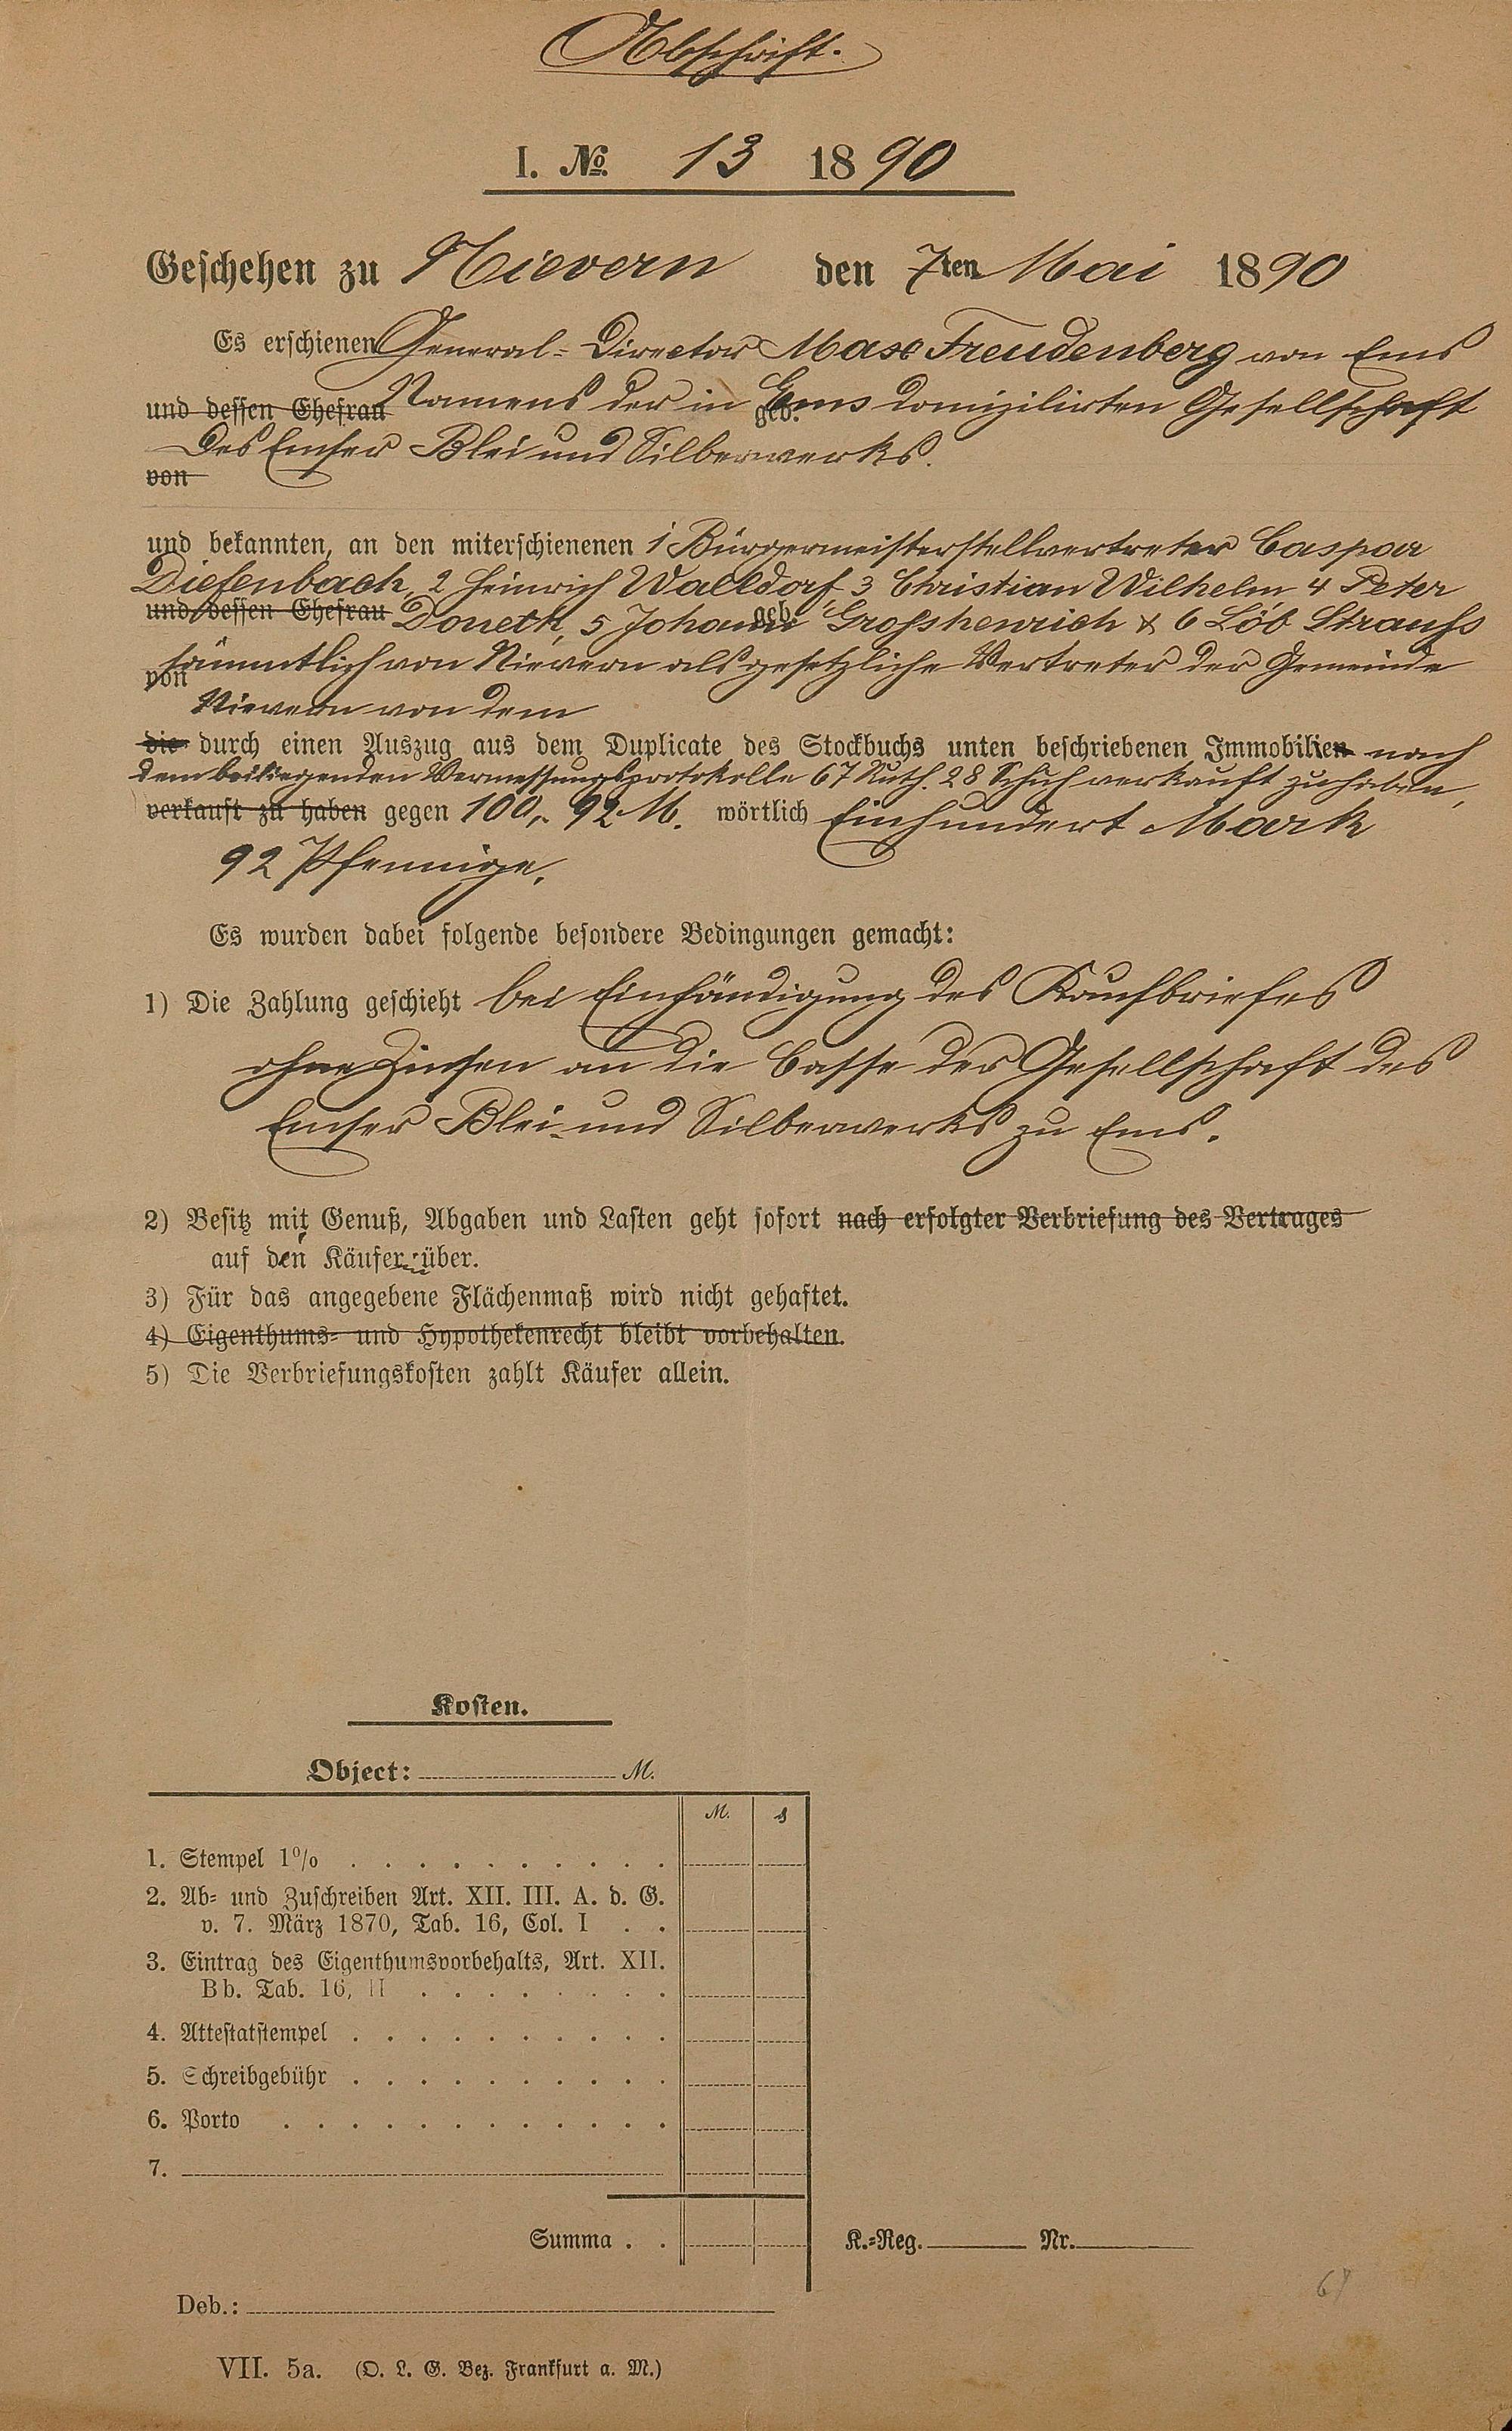 Abschrift.
I. No. 13 1890
Geschehen zu Nievern den 7ten Mai 1890
Es erschienen General-Director Max Freudenberg von Ems
und dessen Ehefrau Namens der in Ems domizilirten Gesellschaft geb.
des Emser Blei und Silberwerks.
von
und bekannten, an den miterschienenen 1 Bürgermeisterstellvertreter Caspar
Diefenbach, 2 Heinrich Walldorf, 3 Christian Wilhelm 4 Peter
und dessen Ehefrau Doneth, 5 Johann geb. Grosshenrich & 6 Löb Strauss
von sämmtlich von Nievern als gesetzliche Vertreter der Gemeinde
Nievern von dem
die durch einen Auszug aus dem Duplicate des Stockbuchs unten beschriebenen Immobilien nach
dem beiliegenden Vermessungsprotokolle 67 Ruth. 28 Schuh verkauft zu haben,
verkauft zu haben gegen 100,- 92 M. wörtlich Einhundert Mark
92 Pfennige.
Es wurden dabei folgende besondere Bedingungen gemacht:
1) Die Zahlung geschieht bei Einhändigung des Kaufbriefes
ohne Zinsen an die Casse der Gesellschaft des
Emser Blei- und Silberwerks zu Ems.
2) Besitz mit Genuß, Abgaben und Lasten geht sofort nach erfolgter Verbriefung des Vertrages
auf den Käufer über.
3) Für das angegebene Flächenmaß wird nicht gehaftet.
4) Eigenthums- und Hypothekenrecht bleibt vorbehalten.
5) Die Verbriefungskosten zahlt Käufer allein.
Kosten.
Object: M.
M. ₰
1. Stempel 1%
2. Ab- und Zuschreiben Art. XII. III. A. d. G.
v. 7. März 1870, Tab. 16, Col. I
3. Eintrag des Eigenthumsvorbehalts, Art. XII.
B b. Tab. 16, II
4. Attestatstempel
5. Schreibgebühr
6. Porto
7.
Summa
K.-Reg. Nr.
Deb.:
VII. 5a. (O. L. G. Bez. Frankfurt a. M.)